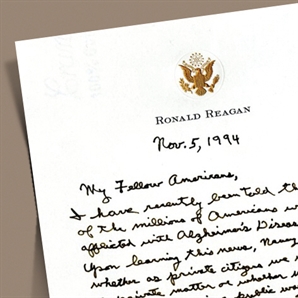 RONALD REAGAN
Nov. 5, 1994
My Fellow Americans,
I have recently been told th
of the millions of Americans w
afflicted with Alzheimer's Disea
Upon learning this news, Nancy
whether as private citizens we
private matter or whether
public wa